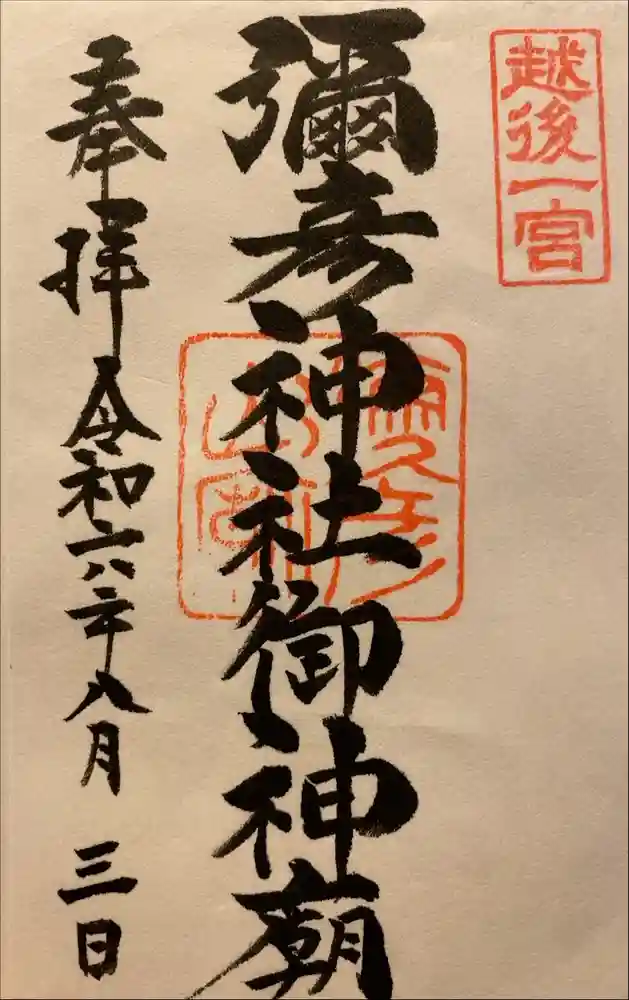 越後一宮
彌彦神社御神廟
奉拝
令和六年八月三日